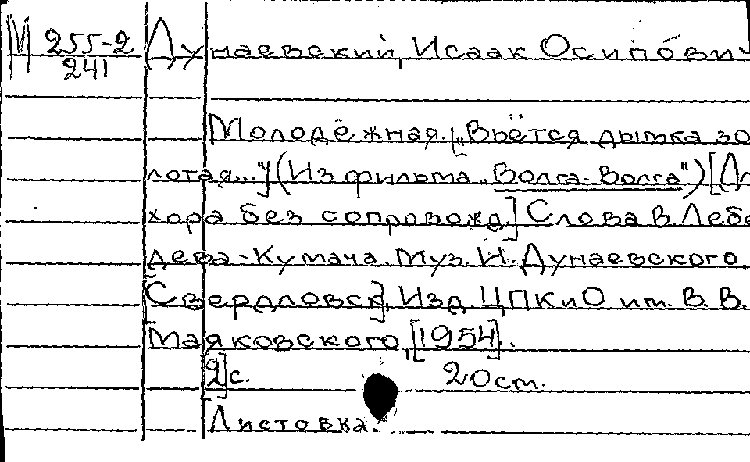 М 255-2
241
Дунаевский, Исаак Осипович
Молодёжная. ["Вьётся дымка зо
лотая..."] (Из фильма "Волга-Волга") [Дл
хора без сопровожд.] Слова В. Лебе
дева-Кумача. Муз. И. Дунаевского.
[Свердловск], Изд. ЦПКиО им. В. В.
Маяковского, [1954].
[2] с. 20 см.
Листовка.